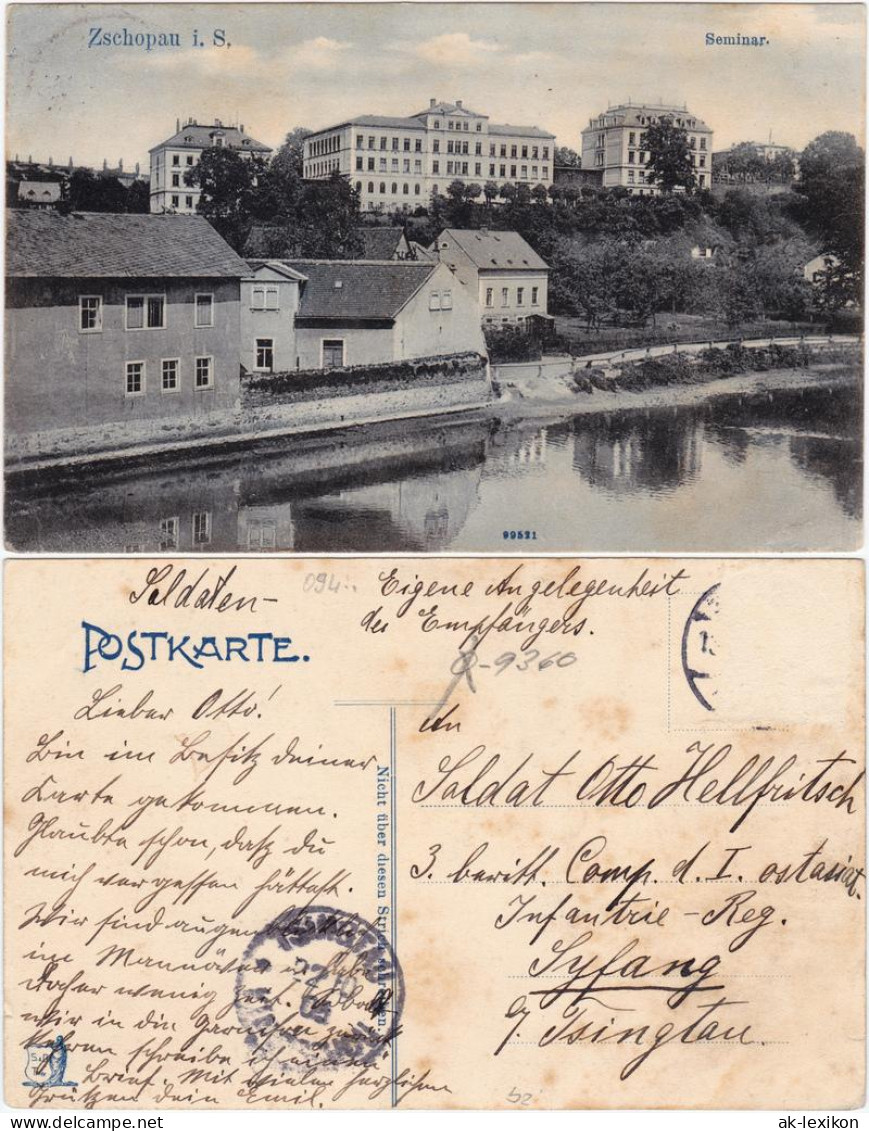 Zschopau i. S.
Seminar.
99521
Soldaten-
094..
Eigene Angelegenheit
des Empfängers.
POSTKARTE.
Q-9360
Lieber Otto!
Bin im Besitz deiner
Karte gekommen.
Glaubte schon, daß du
mich vergessen hättest.
Wir sind augenblicklich
im Manöver u. habe
daher wenig Zeit. Sobald
wir in die Garnison zurück
kehren schreibe ich einen
Brief. Mit vielen herzlichen
Grüßen dein Emil.
Nicht über diesen Strich schreiben.
An
Soldat Otto Hellfritsch
3. beritt. Comp. d. I. ostasiat.
Infantrie-Reg.
Syfang
b/ Tsingtau.
TSINGTAU
bz
ak-lexikon